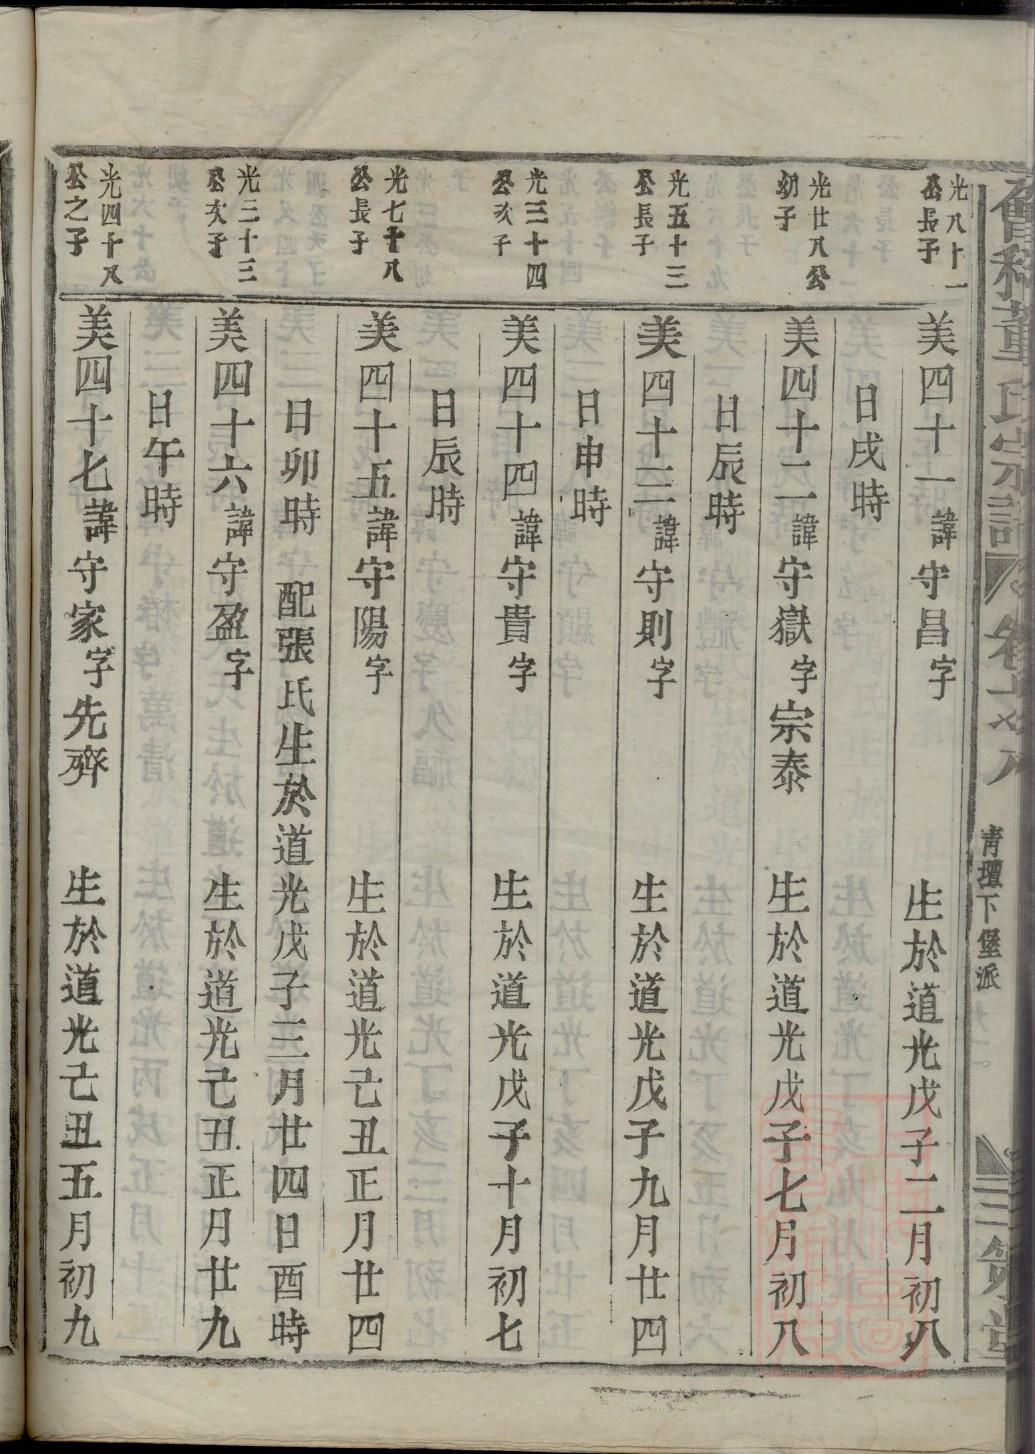 會稽董氏宗譜
青壇下堡派
光八十一
公長子
美四十一諱守昌字 生於道光戊子二月初八
日戌時
光廿八公
幼子
美四十二諱守嶽字宗泰 生於道光戊子七月初八
日辰時
光五十三
公長子
美四十三諱守則字 生於道光戊子九月廿四
日申時
光三十四
公次子
美四十四諱守貴字 生於道光戊子十月初七
日辰時
光七十八
公長子
美四十五諱守陽字 生於道光己丑正月廿四
日卯時 配張氏生於道光戊子三月廿四日酉時
光三十三
公次子
美四十六諱守盈字 生於道光己丑正月廿九
日午時
光四十八
公之子
美四十七諱守家字先齊 生於道光己丑五月初九